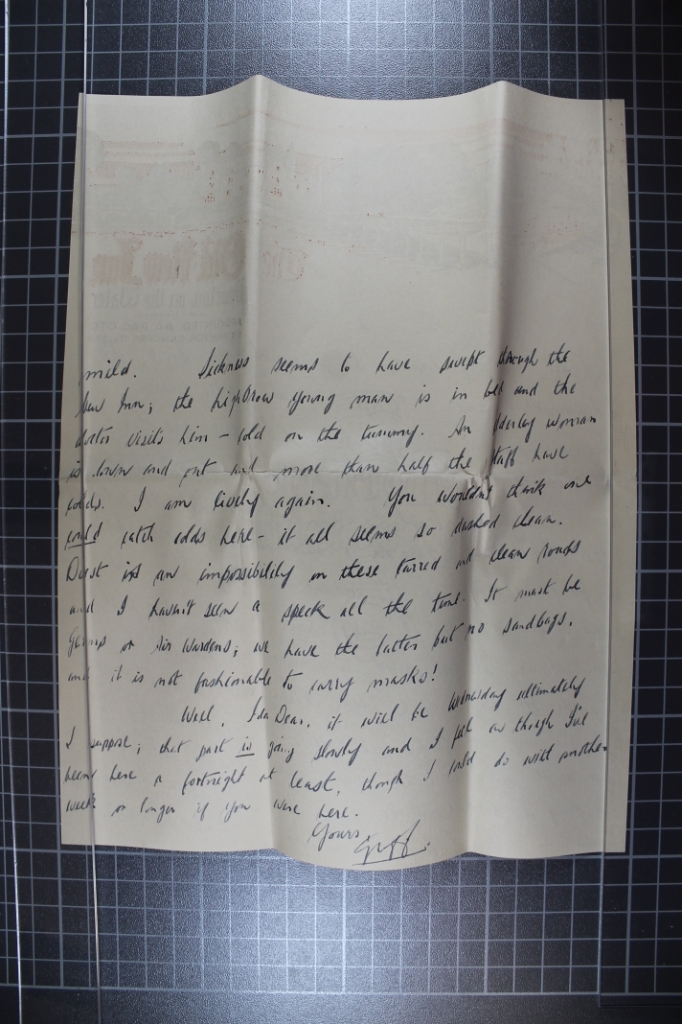 mild. Sickness seems to have swept through the
New Inn; the highbrow young man is in bed and the
doctor visits him - cold on the tummy. An elderley woman
is down and out and more than half the staff have
colds. I am lively again. You wouldn't think one
could catch colds here - it all seems so dashed clean.
Dust is an impossibility on these tarred and clean roads
and I haven't seen a speck all the time. It must be
Germs or Air Wardens; we have the latter but no sandbags,
and it is not fashionable to carry masks!
Well, Ida Dear, it will be Wednesday ultimately
I suppose; that part is going slowly and I feel as though I've
been here a fortnight at least, though I could do with another
week or longer if you were here.
Yours,
Griff.